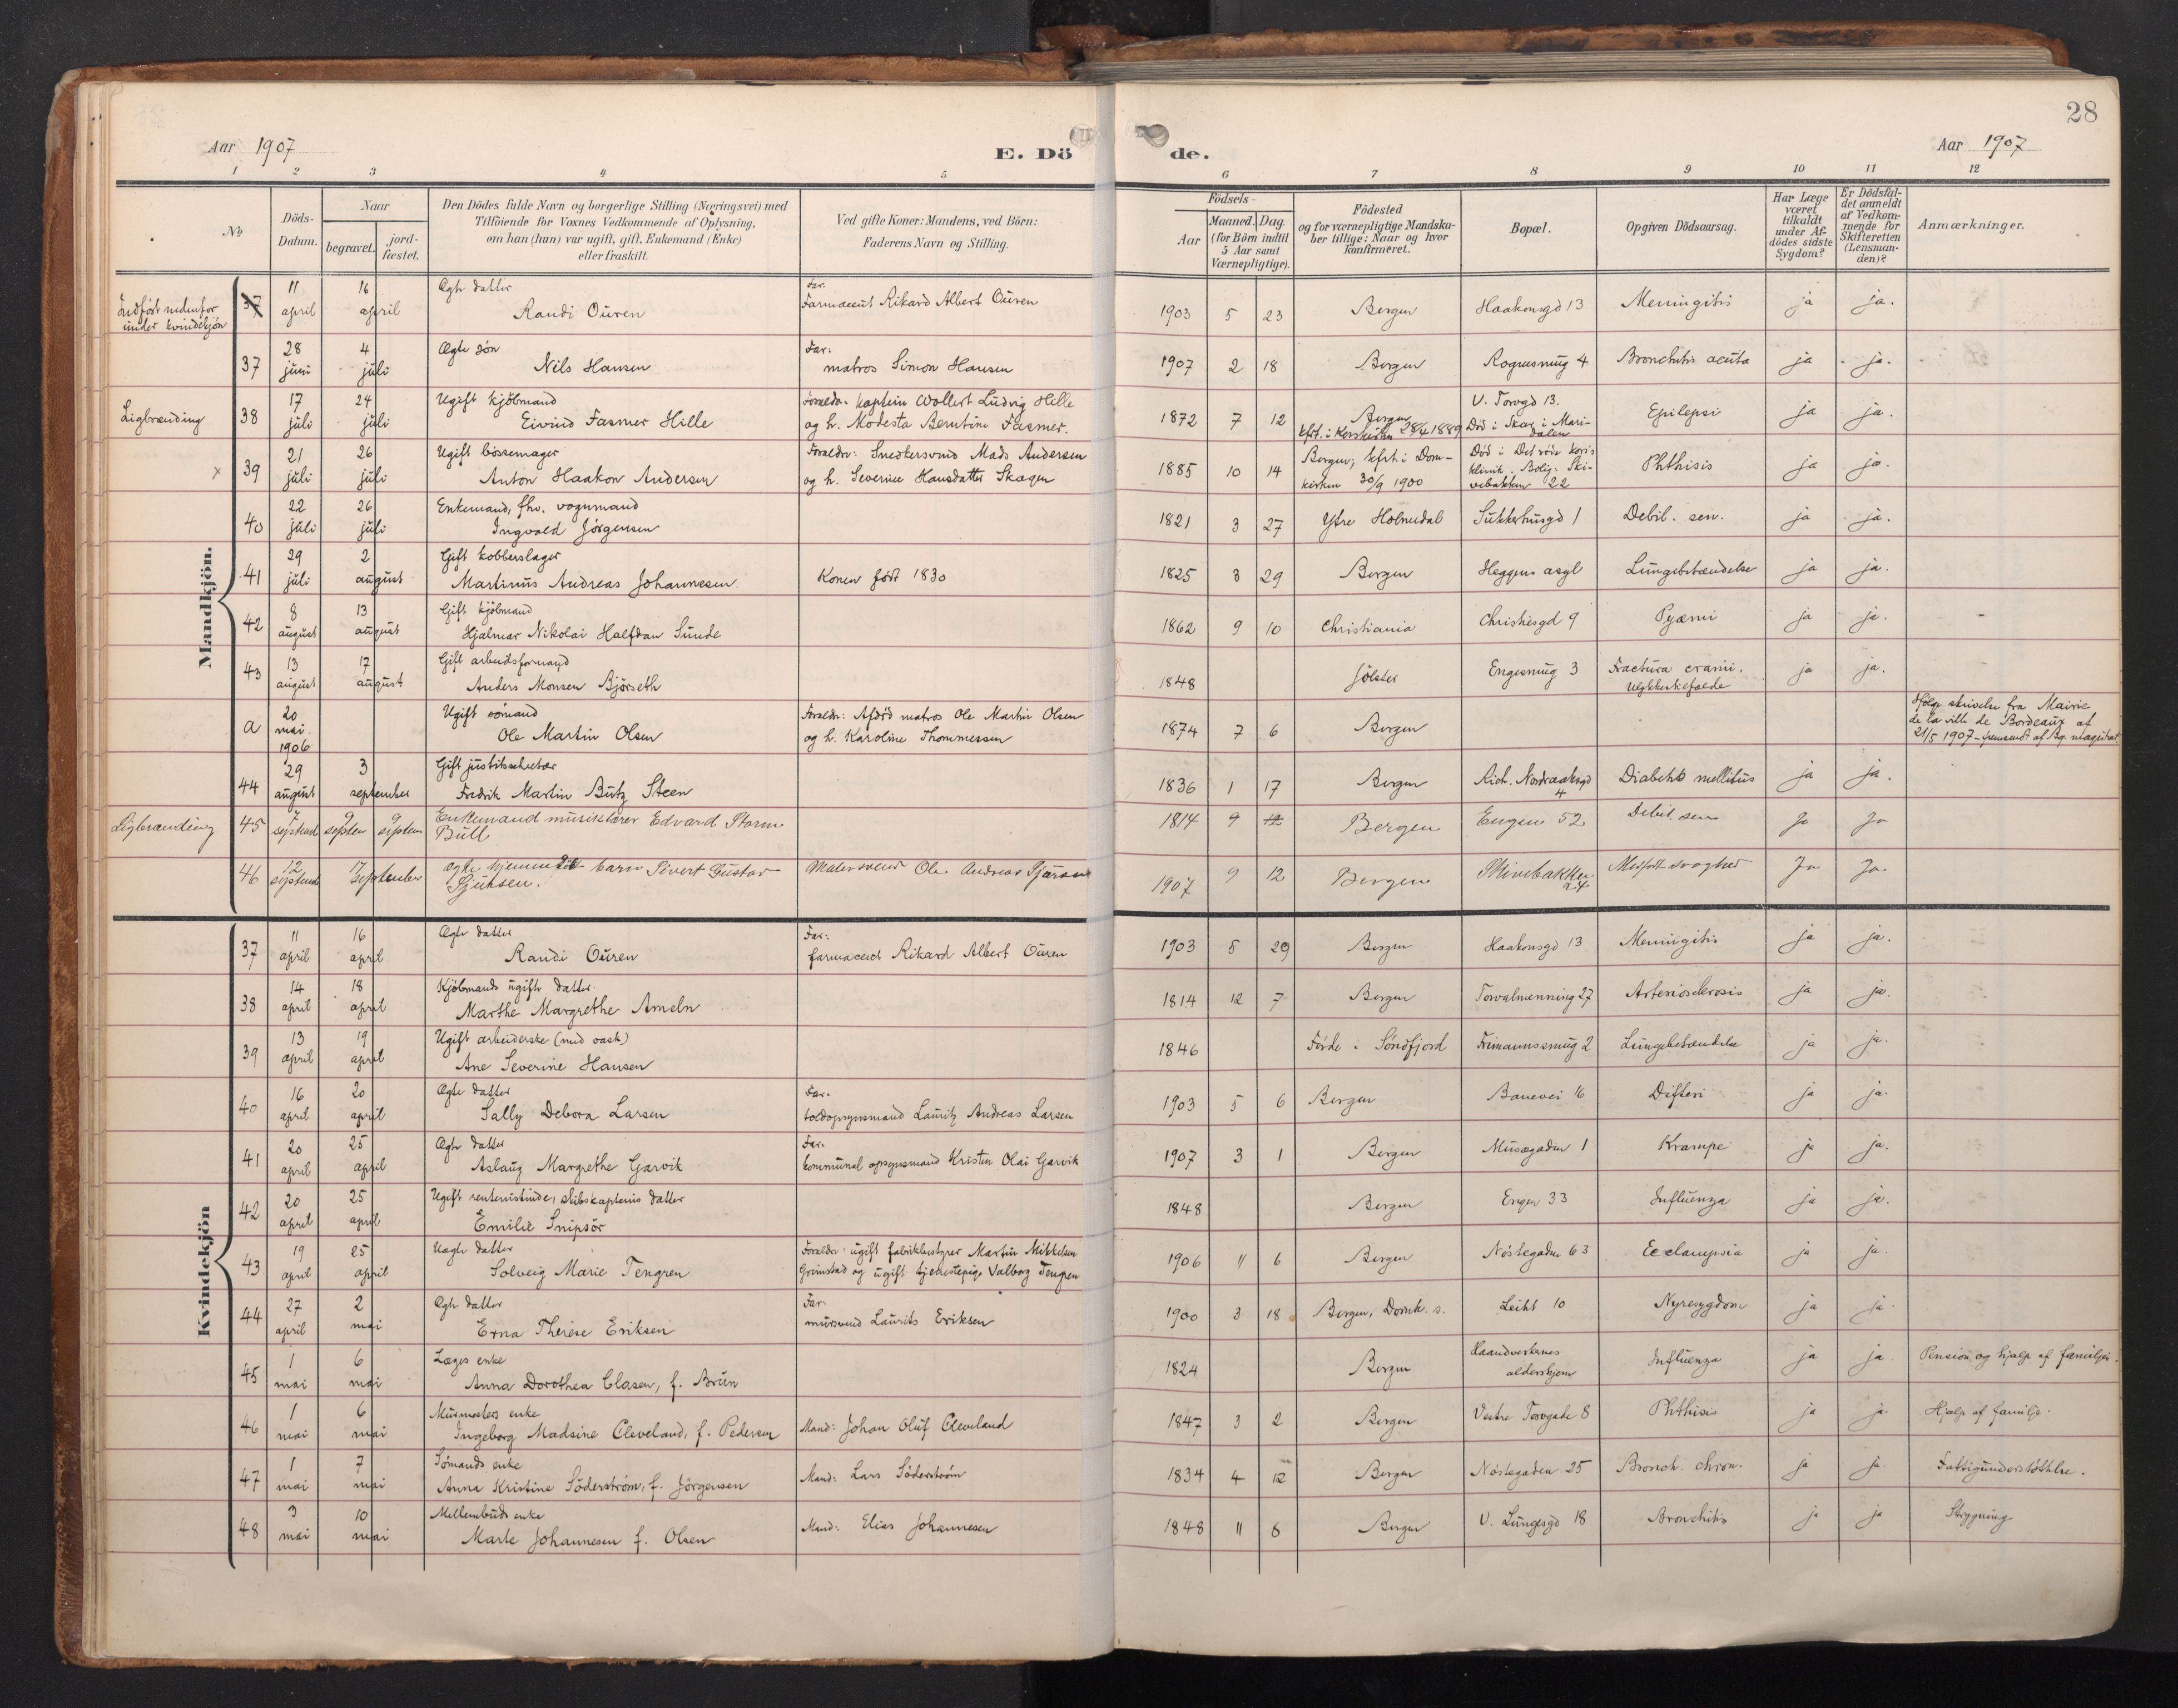 28
Aar 1907
E. Dö de.
Aar 1907
1 2 3 4 5 6 7 8 9 10 11 12
No
Döds-Datum.
Naar
begravet.
jordfæstet.
Den Dödes fulde Navn og borgerlige Stilling (Næringsvei) med
Tilföiende for Voxnes Vedkommende af Oplysning,
om han (hun) var ugift, gift, Enkemand (Enke)
eller fraskilt.
Ved gifte Koner: Mandens, ved Börn:
Faderens Navn og Stilling.
Födsels-
Aar
Maaned.
Dag.
(for Börn indtil
5 Aar samt
Værnepligtige).
Födested
og for værnepligtige Mandskaber
tillige: Naar og hvor
konfirmeret.
Bopæl.
Opgiven Dödsaarsag.
Har Læge
været
tilkaldt
under Afdödes
sidste
Sygdom?
Er Dödsfaldet
anmeldt
af Vedkommende
for
Skifteretten
(Lensmanden)?
Anmærkninger.
Mandkjön.
Indført nedenfor under kvindekjøn 37 11 april 16 april Ægte datter Randi Ouren Far: Farmaceut Rikard Albert Ouren 1903 5 23 Bergen Haakonsgd 13 Meningitis ja ja.
37 28 juni 4 juli Ægte søn Nils Hansen Far: matros Simon Hansen 1907 2 18 Bergen Rognesmug 4 Bronchitis acuta ja ja.
Ligbrænding 38 17 juli 24 juli Ugift kjøbmand Eivind Fasmer Hille Forældr. kaptein Wollert Ludvig Hille og h. Modesta Berntine Fasmer. 1872 7 12 Bergen kfrt. i Korskirken 28/4 1889 V. Torvgd 13. Død i Skar i Maridalen Epilepsi ja ja.
x 39 21 juli 26 juli Ugift bøssemager Anton Haakon Andersen Forældre: Snedkersvend Mads Andersen og h. Severine Hansdatter Skagen 1885 10 14 Bergen, kfrt. i Domkirken 30/9 1900 Død i Det røde kors's klinik. Bolig: Skivebakken 22 Phthisis ja ja.
40 22 juli 26 juli Enkemand, fhv. vognmand Ingvald Jørgensen 1821 3 27 Ytre Holmedal Sukkerhusgd 1 Debil. sen. ja ja.
41 29 juli 2 august Gift kobberslager Martinus Andreas Johannesen Konen født 1830 1825 8 29 Bergen Heggens asyl Lungebetændelse ja ja.
42 8 august 13 august Gift kjøbmand Hjalmar Nikolai Halfdan Sunde 1862 9 10 Christiania Christiesgd 9 Pyæmi ja ja.
43 13 august 17 august Gift arbeidsformand Anders Monsen Bjørseth 1848 Jølster Engesmug 3 Fractura cranii. Ulykkestilfælde ja ja.
a 20 mai 1906 Ugift sømand Ole Martin Olsen Forældr: Afdød matros Ole Martin Olsen og h. Karoline Thommessen 1874 7 6 Bergen Ifølge skrivelse fra Mairie de la ville de Bordeaux af 21/5 1907 - fremsendt af Bg. magistrat
44 29 august 3 september Gift justitssekretær Fredrik Martin Butz Steen 1836 1 17 Bergen Rich. Nordraaksgd 4 Diabetes mellitus ja ja.
Ligbrænding 45 7 septemb 9 septem 9 septem Enkemand musiklærer Edvard Storm Bull 1814 9 12 Bergen Engen 52 Debil. sen Ja Ja
46 12 septemb 17 September Ægte hjemmedøbt barn Sivert Gustav Malersvend Ole Andreas 1907 9 12 Bergen Skivebakken 24 Medfødt svaghed Ja Ja.
Kvindekjön
37 11 april 16 april Ægte datter Randi Ouren Far: farmaceut Rikard Albert Ouren 1903 5 29 Bergen Haakonsgd 13 Meningitis ja ja.
38 14 april 18 april Kjøbmands ugifte datter Marthe Margrethe Ameln 1814 12 7 Bergen Torvalmenning 27 Arteriosclerosis ja ja.
39 13 april 19 april Ugift arbeiderske (med vask) Ane Severine Hansen 1846 Førde i Søndfjord Frimannssmug 2 Lungebetændelse ja ja.
40 16 april 20 april Ægte datter Sally Debora Larsen Far. toldopsynsmand Lauritz Andreas Larsen 1903 5 6 Bergen Banevei 16 Difteri ja ja.
41 20 april 25 april Ægte datter Aslaug Margrethe Garvik Far. kommunal opsynsmand Kristen Olai Garvik 1907 3 1 Bergen Musægaden 1 Krampe ja ja.
42 20 april 25 april Ugift rentenistinde, skibskapteins datter Emilie Snipsør 1848 Bergen Engen 33 Influenza ja ja.
43 19 april 25 april Uægte datter Solveig Marie Tengren Forældre: ugift fabrikbestyrer Martin Mikkelsen Grimstad og ugift tjenestepige Valborg Tengren 1906 11 6 Bergen Nøstegaden 63 Ecclampsia ja ja.
44 27 april 2 mai Ægte datter Erna Therese Eriksen Far. mursvend Laurits Eriksen 1900 3 18 Bergen, Domk. s. Leitet 10 Nyresygdom ja ja.
45 1 mai 6 mai Læges enke Anna Dorothea Clasen, f. Brun 1824 Bergen Haandverkernes aldershjem Influenza ja ja Pension og hjælp af familje.
46 1 mai 6 mai Murmesters enke Ingeborg Madsine Cleveland, f. Pedersen Mand: Johan Oluf Cleveland 1847 3 2 Bergen Vestre Torvgade 8 Phthisis ja ja. Hjælp af familje.
47 1 mai 7 mai Sømands enke Anna Kristine Söderström, f. Jörgensen Mand: Lars Söderström 1834 4 12 Bergen Nøstegaden 25 Bronch. chron. ja ja. Fattigunderstøttelse.
48 3 mai 10 mai Mellembuds enke Marte Johannesen f. Olsen Mand: Elias Johannesen 1848 11 6 Bergen V. Lungegd 18 Bronchitis ja ja Strygning